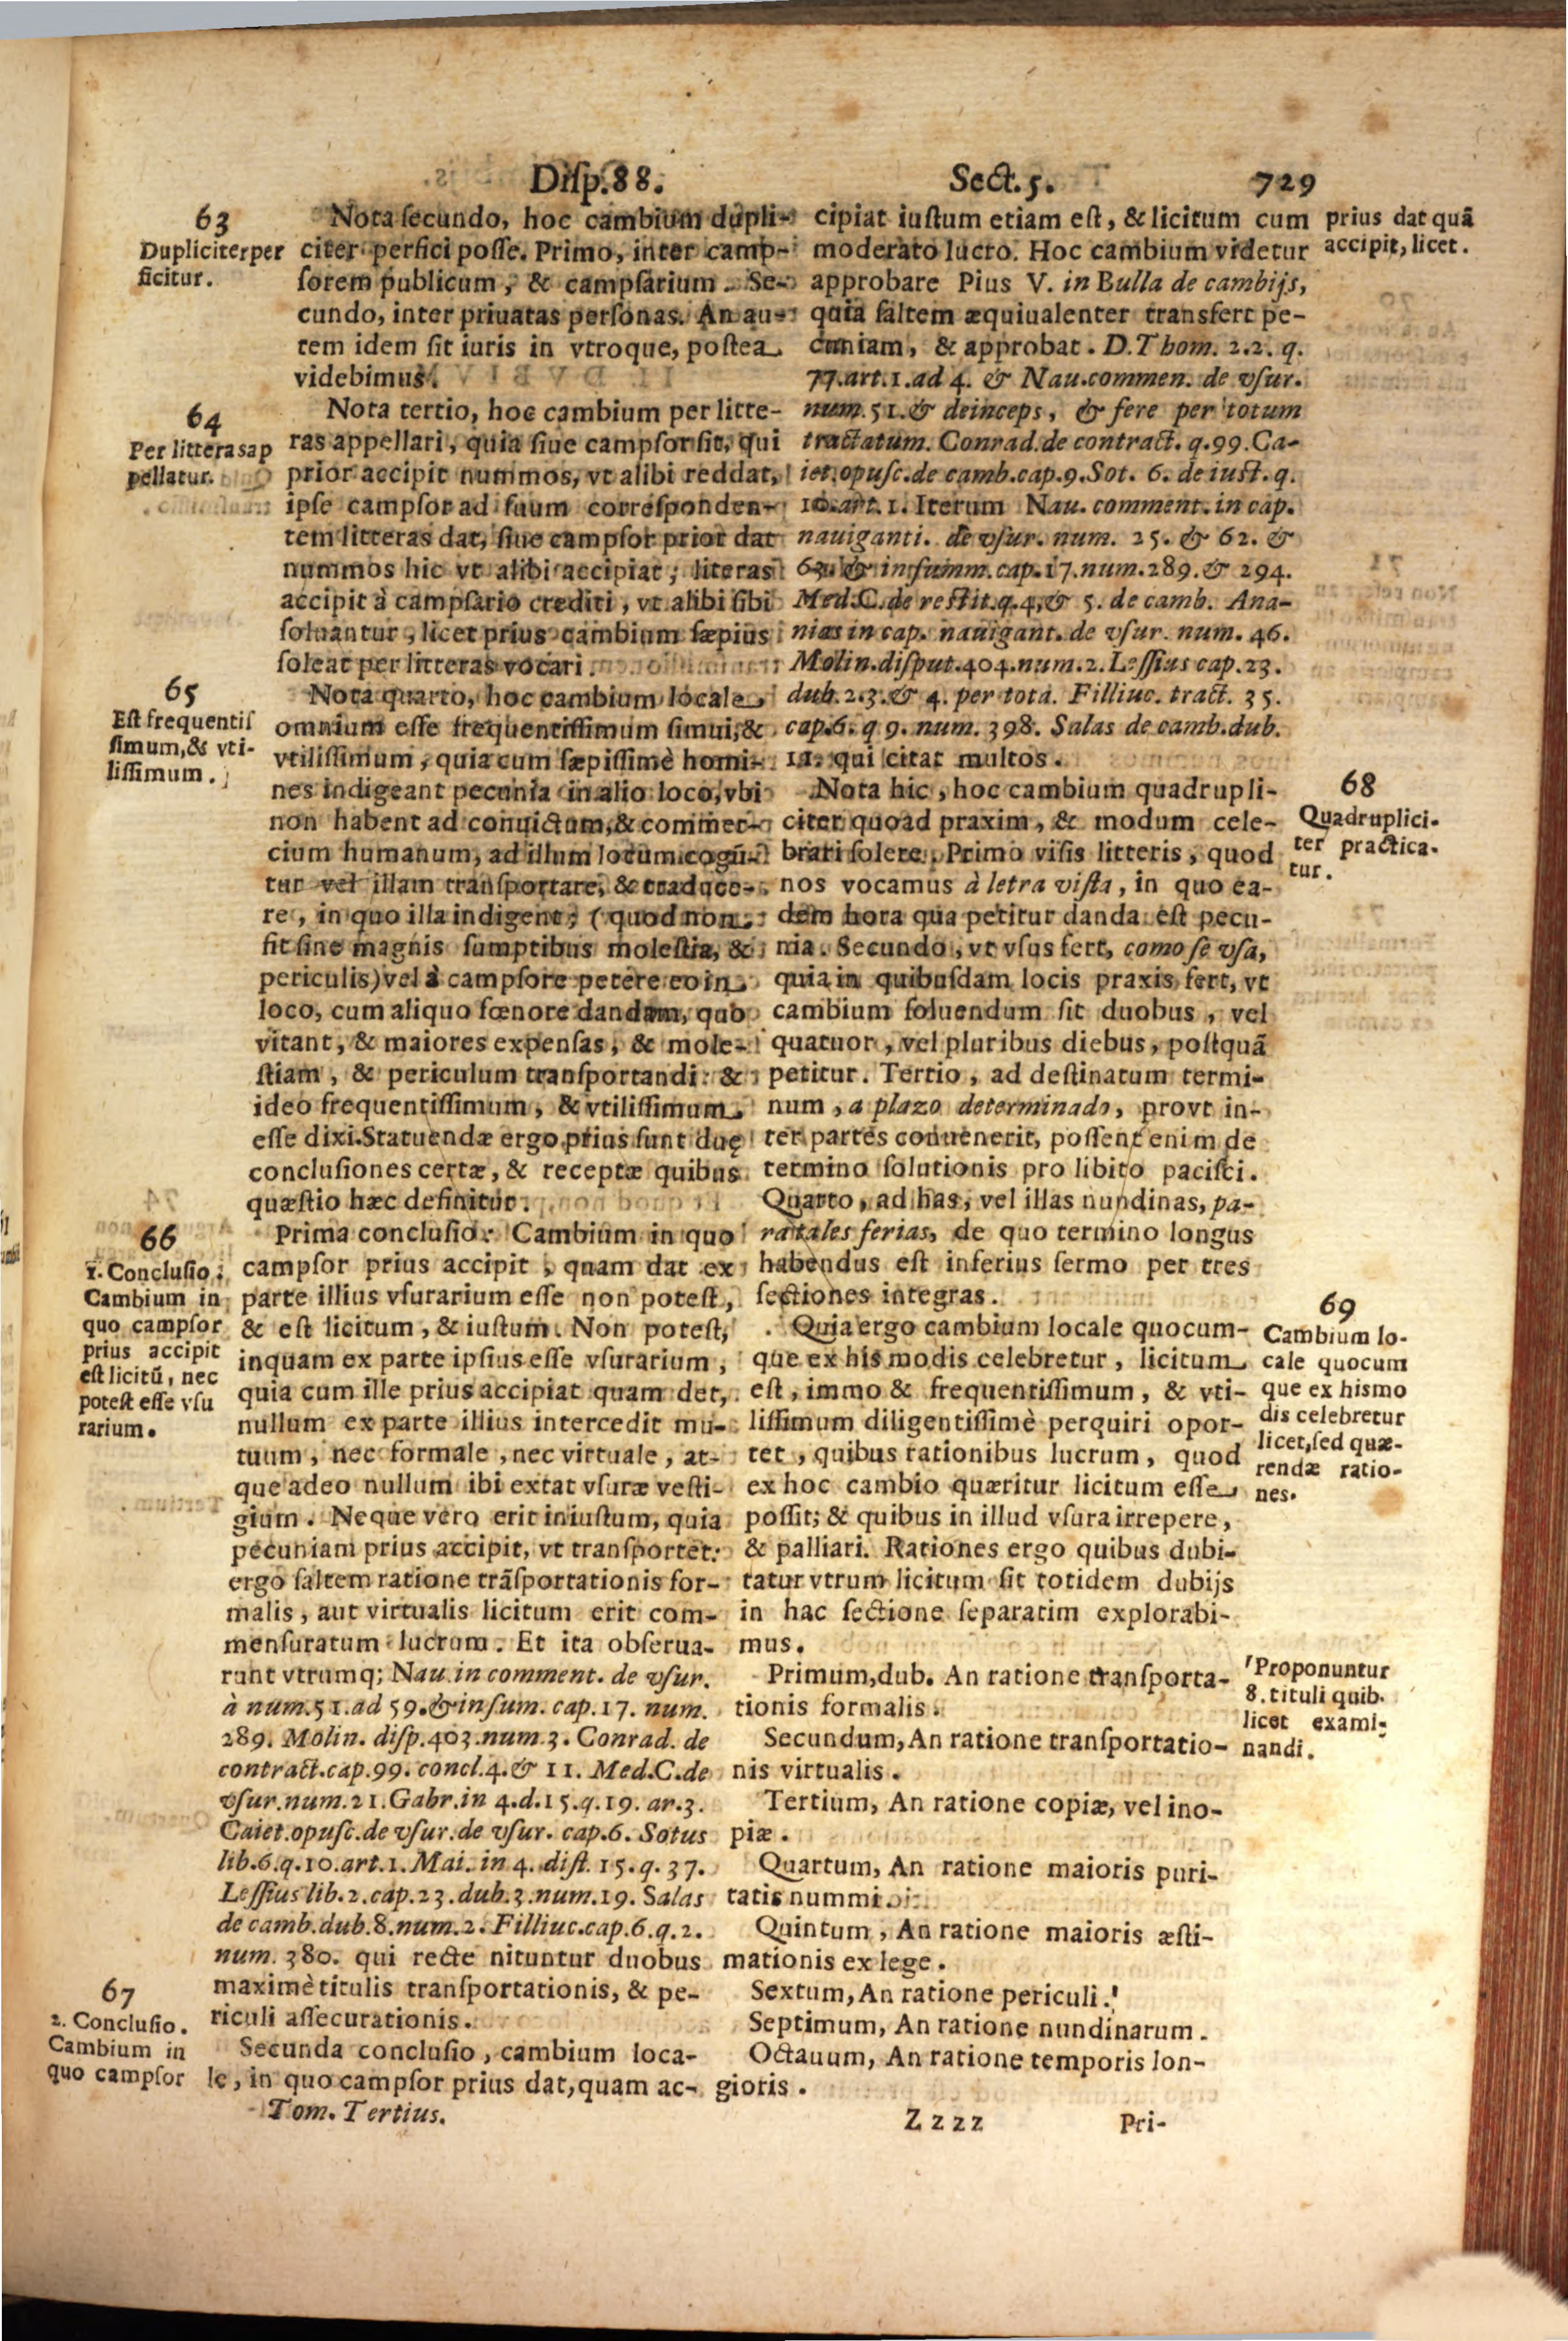 Disp.88. Sect.5. 729
63
Dupliciter per
ficitur.
Nota secundo, hoc cambium dupli-
citer perfici posse. Primo, inter camp-
sorem publicum, & campsarium. Se-
cundo, inter priuatas personas. An au-
tem idem sit iuris in vtroque, postea
videbimus.
64
Per litteras ap
pellatur.
Nota tertio, hoc cambium per litte-
ras appellari, quia siue campsor sit, qui
prior accipit nummos, vt alibi reddat,
ipse campsor ad suum corresponden-
tem litteras dat, siue campsor prior dat
nummos hic vt alibi accipiat; literas
accipit à campsario crediti, vt alibi sibi
soluantur, licet prius cambium sæpius
soleat per litteras vocari.
65
Est frequentis
simum, & vti-
lissimum.
Nota quarto, hoc cambium locale,
omnium esse frequentissimum simul, &
vtilissimum, quia cum sæpissimè homi-
nes indigeant pecunia in alio loco, vbi
non habent ad conuictum, & commer-
cium humanum, ad illum locum cogū-
tur vel illam transportare, & traduce-
re, in quo illa indigent; (quod non
fit sine magnis sumptibus molestia, &
periculis) vel à campsore petere eo in
loco, cum aliquo fœnore dandam, quo
vitant, & maiores expensas, & mole-
stiam, & periculum transportandi: &
ideo frequentissimum, & vtilissimum
esse dixi. Statuendæ ergo prius sunt duę
conclusiones certæ, & receptæ quibus
quæstio hæc definitur.
66
1. Conclusio:
Cambium in
quo campsor
prius accipit
est licitū, nec
potest esse vsu
rarium.
Prima conclusio: Cambium in quo
campsor prius accipit, quam dat ex
parte illius vsurarium esse non potest,
& est licitum, & iustum. Non potest,
inquam ex parte ipsius esse vsurarium,
quia cum ille prius accipiat quam det,
nullum ex parte illius intercedit mu-
tuum, nec formale, nec virtuale, at-
que adeo nullum ibi extat vsuræ vesti-
gium. Neque vero erit iniustum, quia
pecuniam prius accipit, vt transportet:
ergo saltem ratione trāsportationis for-
malis, aut virtualis licitum erit com-
mensuratum lucrum. Et ita obserua-
runt vtrumq; Nau. in comment. de vsur.
à num.51. ad 59. & in sum. cap.17. num.
289. Molin. disp.403. num.3. Conrad. de
contract. cap.99. concl.4. & 11. Med.C. de
vsur. num.21. Gabr. in 4.d.15.q.19. ar.3.
Caiet. opusc. de vsur. de vsur. cap.6. Sotus
lib.6.q.10.art.1. Mai. in 4. dist. 15. q. 37.
Lessius lib.2. cap.23. dub.3. num.19. Salas
de camb. dub.8. num.2. Filliuc. cap.6.q.2.
num. 380. qui recte nituntur duobus
maximè titulis transportationis, & pe-
riculi assecurationis.
67
2. Conclusio.
Cambium in
quo campsor
Secunda conclusio, cambium loca-
le, in quo campsor prius dat, quam ac-
Tom. Tertius.
cipiat iustum etiam est, & licitum cum
moderato lucro. Hoc cambium videtur
approbare Pius V. in Bulla de cambijs,
quia saltem æquiualenter transfert pe-
cuniam, & approbat. D. Thom. 2.2. q.
77. art.1. ad 4. & Nau. commen. de vsur.
num. 51. & deinceps, & fere per totum
tractatum. Conrad. de contract. q.99. Ca-
iet. opusc. de camb. cap.9. Sot. 6. de iust. q.
10. art. 1. Iterum Nau. comment. in cap.
nauiganti. de vsur. num. 25. & 62. &
63. & in summ. cap.17. num.289. & 294.
Med.C. de restit. q.4. & 5. de camb. Ana-
nias in cap. nauigant. de vsur. num. 46.
Molin. disput.404. num.2. Lessius cap.23.
dub.2.3. & 4. per totā. Filliuc. tract. 35.
cap.6. q 9. num. 398. Salas de camb. dub.
11. qui citat multos.
prius dat quā
accipit, licet.
68
Quadruplici-
ter practica-
tur.
Nota hic, hoc cambium quadrupli-
citer quoad praxim, & modum cele-
brari solere. Primo visis litteris, quod
nos vocamus à letra vista, in quo ea-
dem hora qua petitur danda est pecu-
nia. Secundo, vt vsus fert, como se vsa,
quia in quibusdam locis praxis fert, vt
cambium soluendum sit duobus, vel
quatuor, vel pluribus diebus, postquā
petitur. Tertio, ad destinatum termi-
num, a plazo determinado, provt in-
ter partes conuenerit, possent enim de
termino solutionis pro libito pacisci.
Quarto, ad has, vel illas nundinas, pa-
ra tales ferias, de quo termino longus
habendus est inferius sermo per tres
sectiones integras.
69
Cambium lo-
cale quocum
que ex his mo
dis celebretur
licet, sed quæ-
rendæ ratio-
nes.
Quia ergo cambium locale quocum-
que ex his modis celebretur, licitum
est, immo & frequentissimum, & vti-
lissimum diligentissimè perquiri opor-
tet, quibus rationibus lucrum, quod
ex hoc cambio quæritur licitum esse
possit; & quibus in illud vsura irrepere,
& palliari. Rationes ergo quibus dubi-
tatur vtrum licitum sit totidem dubijs
in hac sectione separatim explorabi-
mus.
Proponuntur
8. tituli quib.
licet exami-
nandi.
Primum, dub. An ratione transporta-
tionis formalis.
Secundum, An ratione transportatio-
nis virtualis.
Tertium, An ratione copiæ, vel ino-
piæ.
Quartum, An ratione maioris puri-
tatis nummi.
Quintum, An ratione maioris æsti-
mationis ex lege.
Sextum, An ratione periculi.
Septimum, An ratione nundinarum.
Octauum, An ratione temporis lon-
gioris.
Zzzz Pri-